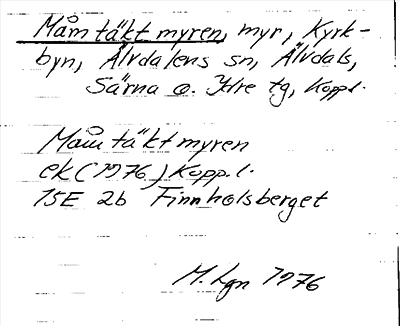 Måmtäktmyren, myr, Kyrk-
byn, Älvdalens sn, Älvdals,
Särna o. Idre tg, Kopp.l.
Måmtäktmyren
ek (1976) Kopp.l.
15E 2b Finnholsberget
M. Lgn 1976